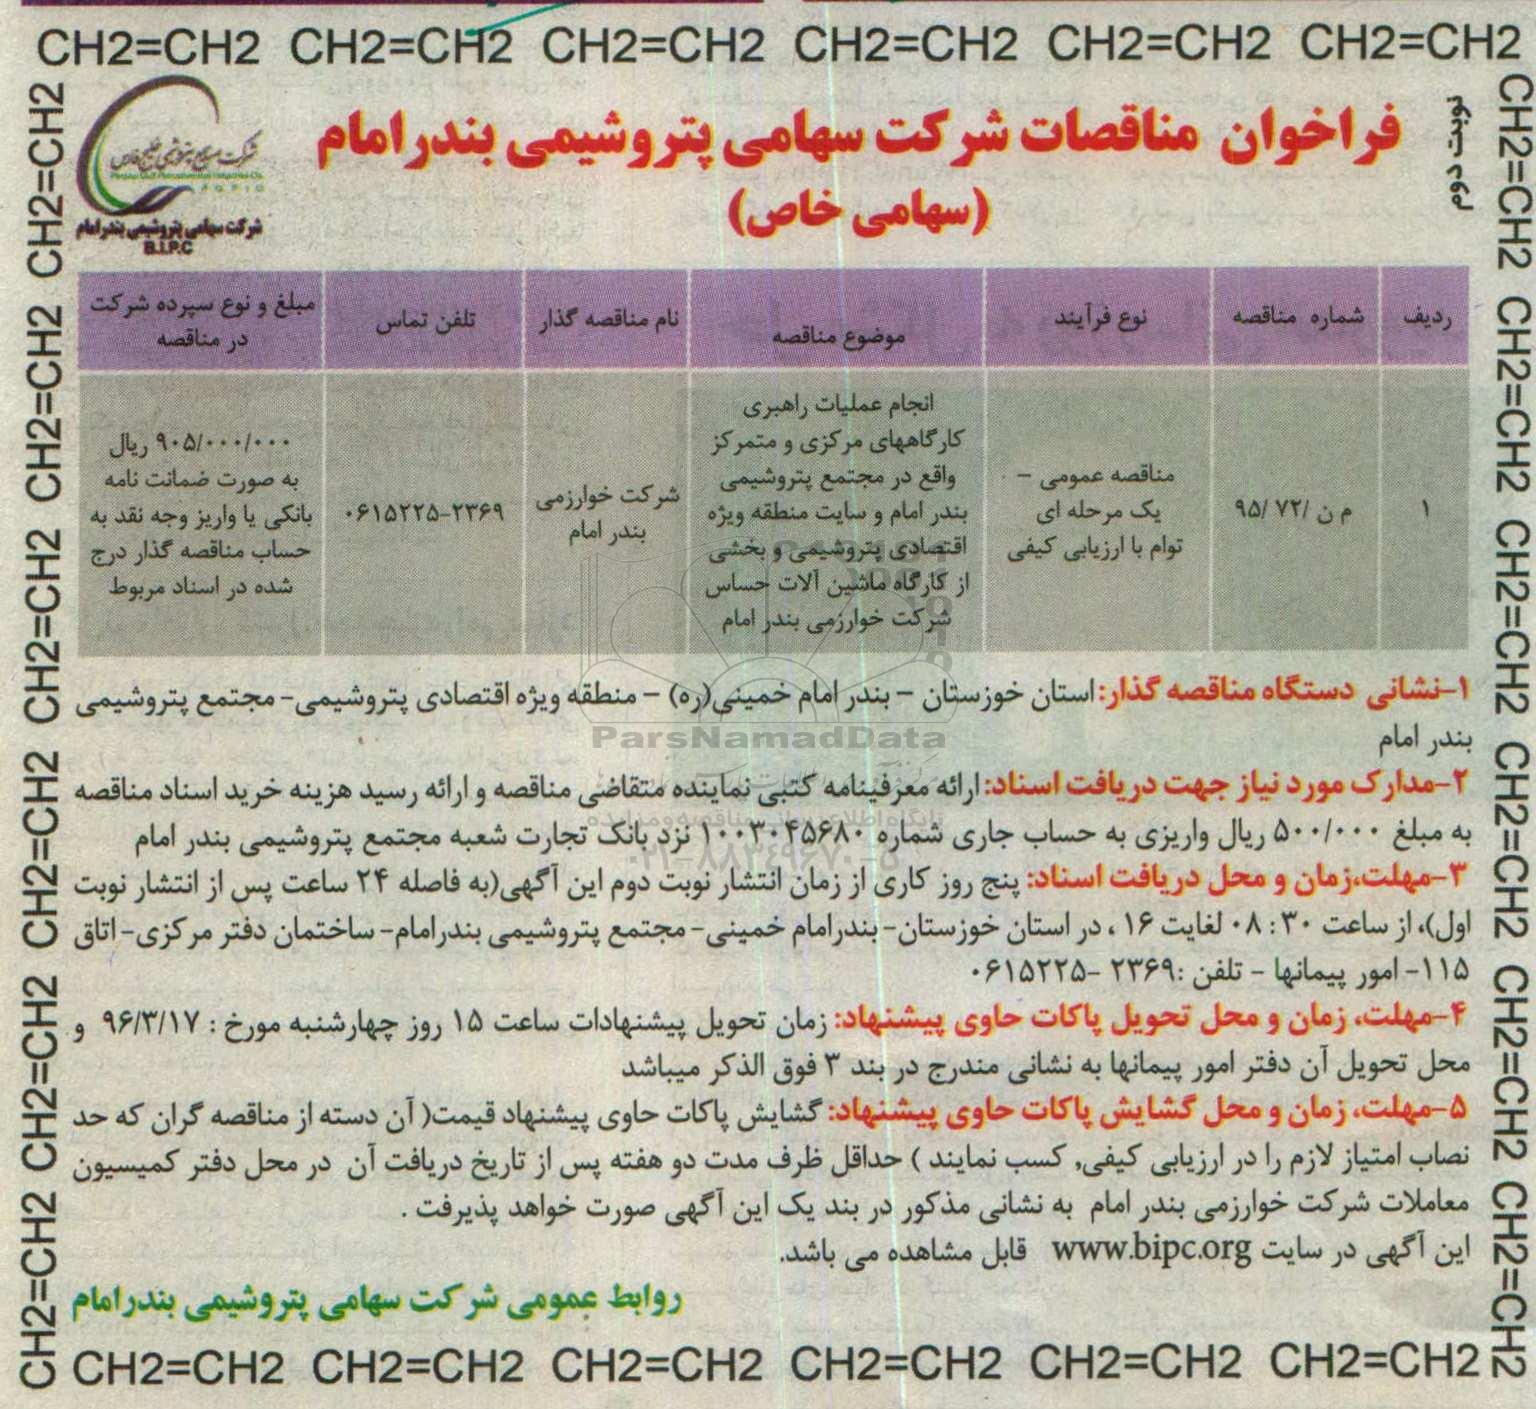 CH2=CH2 CH2=CH2 CH2=CH2 CH2=CH2 CH2=CH2 CH2=CH2
نوبت دوم
فراخوان مناقصات شرکت سهامی پتروشیمی بندرامام
(سهامی خاص)
شرکت صنایع پتروشیمی خلیج فارس
شرکت سهامی پتروشیمی بندرامام
B.I.P.C
ردیف
شماره مناقصه
نوع فرآیند
موضوع مناقصه
نام مناقصه گذار
تلفن تماس
مبلغ و نوع سپرده شرکت
در مناقصه
۱
م ن /۷۲ /۹۵
مناقصه عمومی –
یک مرحله ای
توام با ارزیابی کیفی
انجام عملیات راهبری
کارگاههای مرکزی و متمرکز
واقع در مجتمع پتروشیمی
بندر امام و سایت منطقه ویژه
اقتصادی پتروشیمی و بخشی
از کارگاه ماشین آلات حساس
شرکت خوارزمی بندر امام
شرکت خوارزمی
بندر امام
۰۶۱۵۲۲۵-۲۳۶۹
۹۰۵/۰۰۰/۰۰۰ ریال
به صورت ضمانت نامه
بانکی یا واریز وجه نقد به
حساب مناقصه گذار درج
شده در اسناد مربوط
۱-نشانی دستگاه مناقصه گذار: استان خوزستان – بندر امام خمینی(ره) – منطقه ویژه اقتصادی پتروشیمی- مجتمع پتروشیمی
بندر امام
ParsNamadData
۲-مدارک مورد نیاز جهت دریافت اسناد: ارائه معرفینامه کتبی نماینده متقاضی مناقصه و ارائه رسید هزینه خرید اسناد مناقصه
پایگاه اطلاع رسانی مناقصه و مزایده
به مبلغ ۵۰۰/۰۰۰ ریال واریزی به حساب جاری شماره ۱۰۰۳۰۴۵۶۸۰ نزد بانک تجارت شعبه مجتمع پتروشیمی بندر امام
۰۲۱-۸۸۳۴۹۶۷۰-۵
۳-مهلت،زمان و محل دریافت اسناد: پنج روز کاری از زمان انتشار نوبت دوم این آگهی(به فاصله ۲۴ ساعت پس از انتشار نوبت
اول)، از ساعت ۳۰ : ۰۸ لغایت ۱۶ ، در استان خوزستان- بندرامام خمینی- مجتمع پتروشیمی بندرامام- ساختمان دفتر مرکزی- اتاق
۱۱۵- امور پیمانها - تلفن :۲۳۶۹ -۰۶۱۵۲۲۵
۴-مهلت، زمان و محل تحویل پاکات حاوی پیشنهاد: زمان تحویل پیشنهادات ساعت ۱۵ روز چهارشنبه مورخ : ۹۶/۳/۱۷ و
محل تحویل آن دفتر امور پیمانها به نشانی مندرج در بند ۳ فوق الذکر میباشد
۵-مهلت، زمان و محل گشایش پاکات حاوی پیشنهاد: گشایش پاکات حاوی پیشنهاد قیمت( آن دسته از مناقصه گران که حد
نصاب امتیاز لازم را در ارزیابی کیفی, کسب نمایند ) حداقل ظرف مدت دو هفته پس از تاریخ دریافت آن در محل دفتر کمیسیون
معاملات شرکت خوارزمی بندر امام به نشانی مذکور در بند یک این آگهی صورت خواهد پذیرفت .
این آگهی در سایت www.bipc.org قابل مشاهده می باشد.
روابط عمومی شرکت سهامی پتروشیمی بندرامام
CH2=CH2 CH2=CH2 CH2=CH2 CH2=CH2 CH2=CH2 CH2=CH2
CH2=CH2 CH2=CH2 CH2=CH2 CH2=CH2 CH2=CH2 CH2=CH2
CH2=CH2 CH2=CH2 CH2=CH2 CH2=CH2 CH2=CH2 CH2=CH2